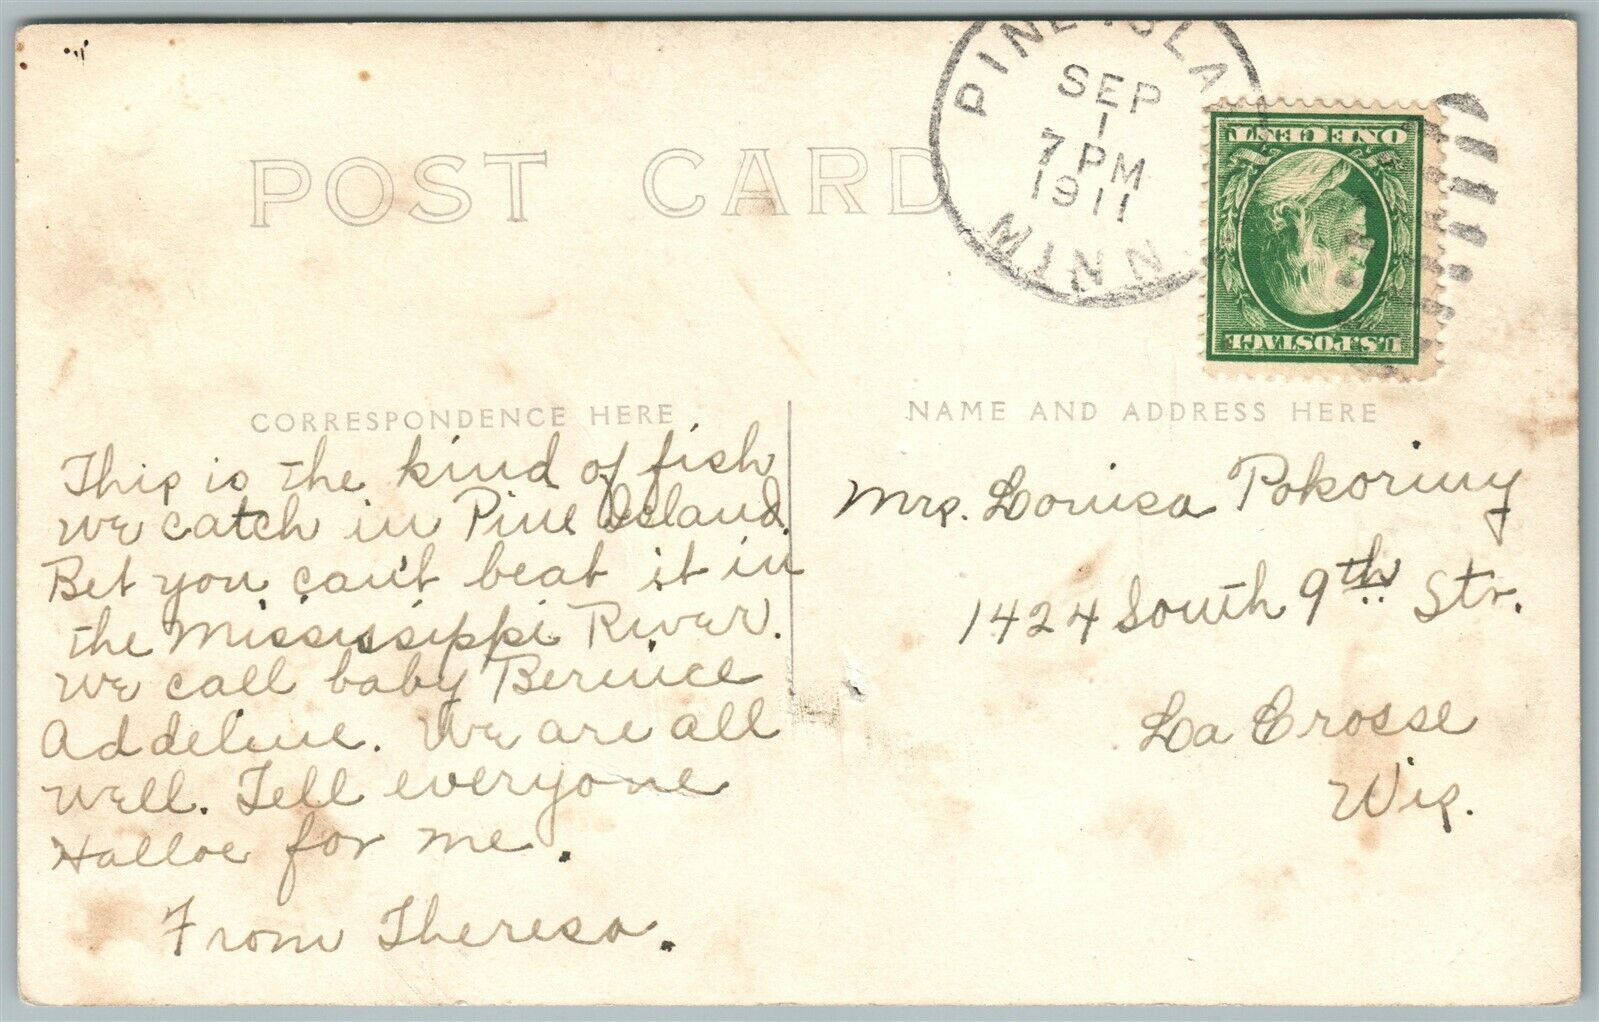 POST CARD
PINE ISLA
SEP
1
7 PM
1911
MINN
U.S. POSTAGE
ONE CENT
CORRESPONDENCE HERE
This is the kind of fish
we catch in Pine Island.
Bet you can't beat it in
the Mississippi River.
We call baby Bernice
Addeline. We are all
well. Tell everyone
Halloe for me.
From Theresa.
NAME AND ADDRESS HERE
Mrs. Louisa Pokoriny
1424 South 9th Str.
La Crosse
Wis.